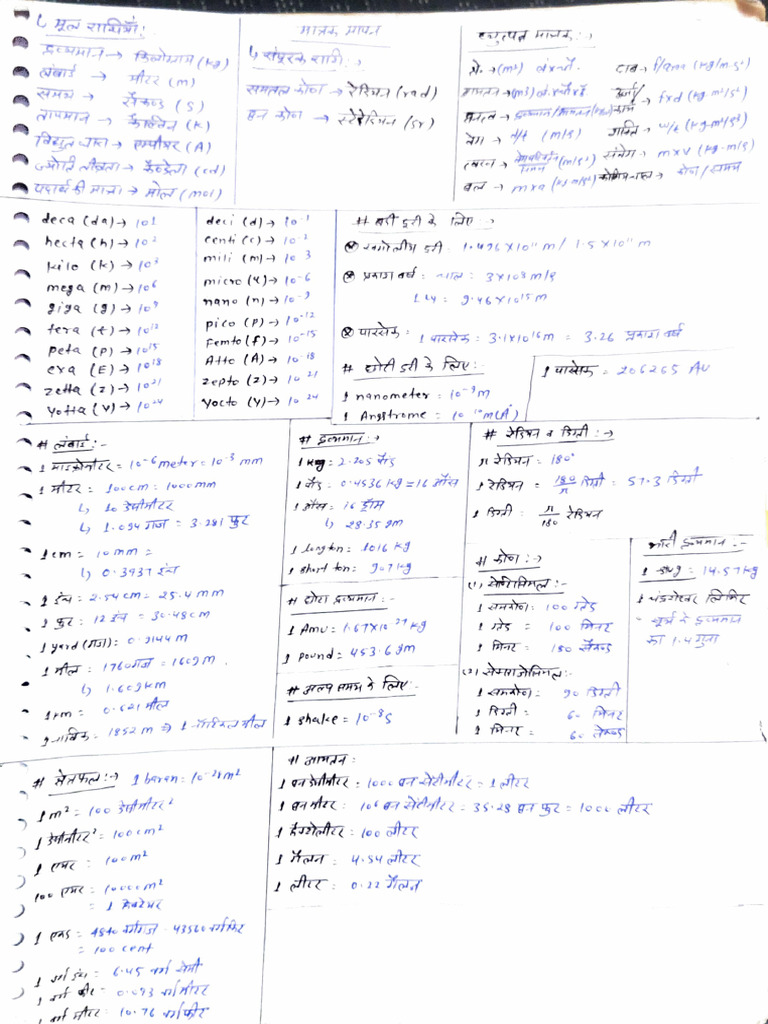 ↳ मूल राशियाँ:-
द्रव्यमान → किलोग्राम (kg)
लंबाई → मीटर (m)
समय → सैकण्ड (S)
तापमान → कैल्विन (K)
विद्युत धारा → एम्पीयर (A)
ज्योति तीव्रता → कैण्डेला (cd)
पदार्थ की मात्रा → मोल (mol)
मात्रक मापन
↳ संपूरक राशि:-
समतल कोण → रेडियन (rad)
घन कोण → स्टेरेडियन (sr)
व्युत्पन्न मात्रक:-
क्षे. → (m²) लं×चौ.
आयतन → (m³) लं×चौ×ऊँ
वेग → d/t (m/s)
बल → mxa (kg-m/s²)
दाब → f/area (kg/m-s²)
ऊर्जा/कार्य → fxd (kg-m²/s²)
शक्ति → w/t (kg-m²/s³)
संवेग → mxv (kg-m/s)
कोणीय चाल → कोण/समय
deca (da) → 10¹
hecta (h) → 10²
kilo (k) → 10³
mega (m) → 10⁶
giga (g) → 10⁹
tera (t) → 10¹²
peta (p) → 10¹⁵
exa (E) → 10¹⁸
zetta (z) → 10²¹
yotta (y) → 10²⁴
deci (d) → 10⁻¹
centi (c) → 10⁻²
mili (m) → 10⁻³
micro (y) → 10⁻⁶
nano (n) → 10⁻⁹
pico (p) → 10⁻¹²
femto (f) → 10⁻¹⁵
Atto (A) → 10⁻¹⁸
zepto (z) → 10⁻²¹
yocto (y) → 10⁻²⁴
# बड़ी दूरी के लिए:-
खगोलीय दूरी: 1.496×10¹¹ m / 1.5×10¹¹ m
प्रकाश वर्ष: चाल: 3×10⁸ m/s
1 Ly = 9.46×10¹⁵ m
पारसेक: 1 पारसेक: 3.1×10¹⁶ m = 3.26 प्रकाश वर्ष
# छोटी दूरी के लिए:-
1 nanometer: 10⁻⁹ m
1 Angstrome = 10⁻¹⁰ m (Å)
1 पारसेक = 206265 AU
# लंबाई:-
1 माइक्रोमीटर = 10⁻⁶ meter = 10⁻³ mm
1 मीटर = 100cm = 1000mm
↳ 10 डेसीमीटर
↳ 1.094 गज = 3.281 फुट
1 cm = 10 mm =
↳ 0.3937 इंच
1 इंच = 2.54 cm = 25.4 mm
1 फुट = 12 इंच = 30.48 cm
1 yard (गज) = 0.9144 m
1 मील = 1760 गज = 1609 m
↳ 1.609 km
1 km = 0.621 मील
1852 m ⇒ 1 नॉटिकल मील
# द्रव्यमान:-
1 kg = 2.205 पौंड
1 पौंड = 0.4536 kg = 16 औंस
1 औंस: 16 ड्राम
↳ 28.35 gm
1 long ton: 1016 kg
1 short ton: 907 kg
# छोटा द्रव्यमान:-
1 Amu: 1.67×10⁻²⁷ kg
1 pound = 453.6 gm
# अल्प समय के लिए:-
1 shake = 10⁻⁸ s
# रेडियन व डिग्री:-
π रेडियन = 180°
1 रेडियन = 180/π डिग्री = 57.3 डिग्री
1 डिग्री = π/180 रेडियन
# कोण:-
(1) सेन्टिसिमल:-
1 समकोण: 100 ग्रेड
1 ग्रेड = 100 मिनट
1 मिनट: 180 सैकण्ड
(2) सेक्साजेसिमल:-
1 समकोण: 90 डिग्री
1 डिग्री = 60 मिनट
1 मिनट = 60 सैकण्ड
भारी द्रव्यमान:-
1 slug = 14.57 kg
1 चंद्रशेखर लिमिट
- सूर्य के द्रव्यमान
का 1.4 गुना
# क्षेत्रफल:- 1 baran: 10⁻²⁸ m²
1 m² = 100 डेसीमीटर²
1 डेसीमीटर² = 100 cm²
1 एयर = 100 m²
100 एयर = 10000 m²
= 1 हेक्टेयर
1 एकड़ = 4840 वर्गगज - 43560 वर्गफिट
= 100 cent
1 वर्ग इंच = 6.45 वर्ग सेमी
1 वर्ग फीट = 0.093 वर्गमीटर
1 वर्ग मीटर = 10.76 वर्गफीट
# आयतन:
1 घन डेसीमीटर: 1000 घन सेंटीमीटर = 1 लीटर
1 घन मीटर: 10⁶ घन सेंटीमीटर = 35.28 घन फुट = 1000 लीटर
1 हैक्टोलीटर: 100 लीटर
1 गैलन = 4.54 लीटर
1 लीटर = 0.22 गैलन